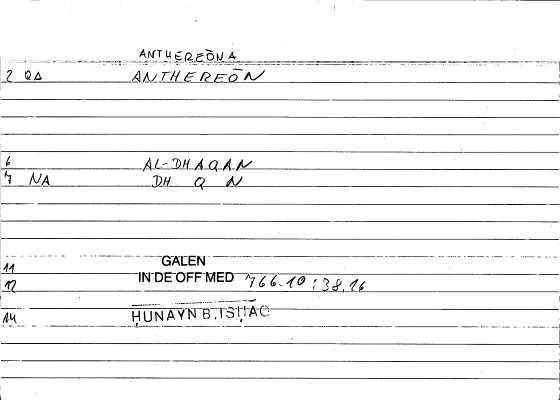 ANTHEREŌNA
2 QΔ ANTHEREŌN
6 AL-DHAQAN
7 NA DH Q N
11 GALEN
12 IN DE OFF MED 766.10:38.16
14 ḤUNAYN B. ISḤĀQ